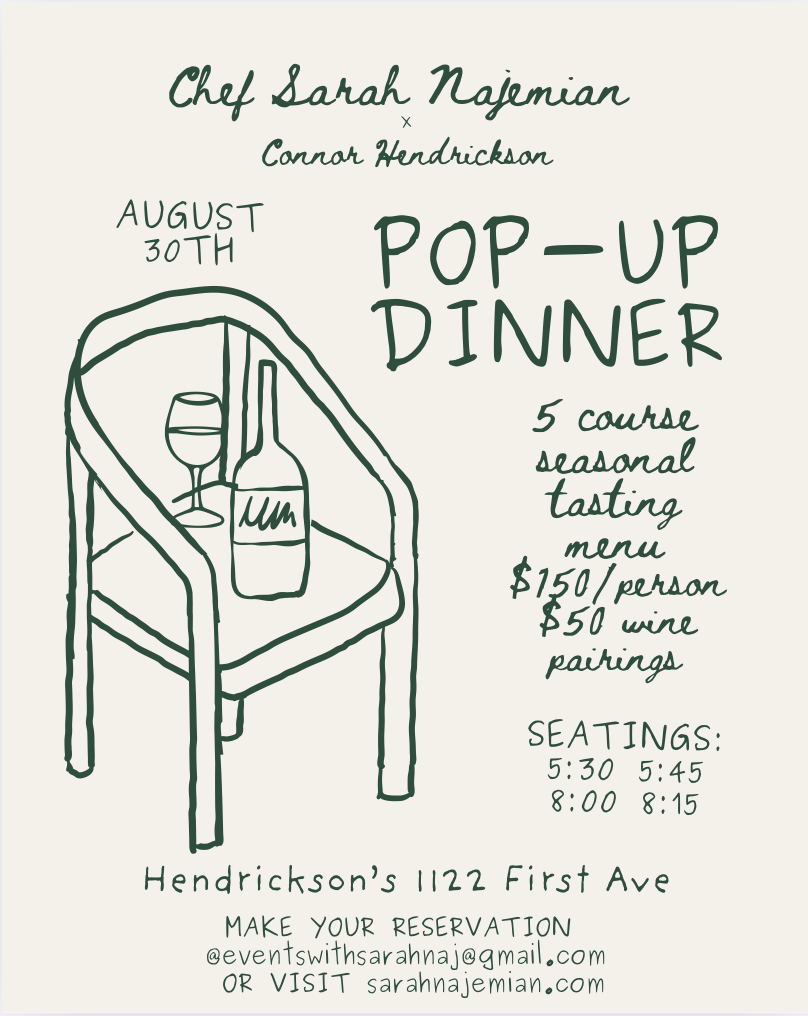 Chef Sarah Najemian
x
Connor Hendrickson
AUGUST
30TH
POP-UP
DINNER
5 course
seasonal
tasting
menu
$150/person
$50 wine
pairings
SEATINGS:
5:30 5:45
8:00 8:15
Hendrickson's 1122 First Ave
MAKE YOUR RESERVATION
@eventswithsarahnaj@gmail.com
OR VISIT sarahnajemian.com